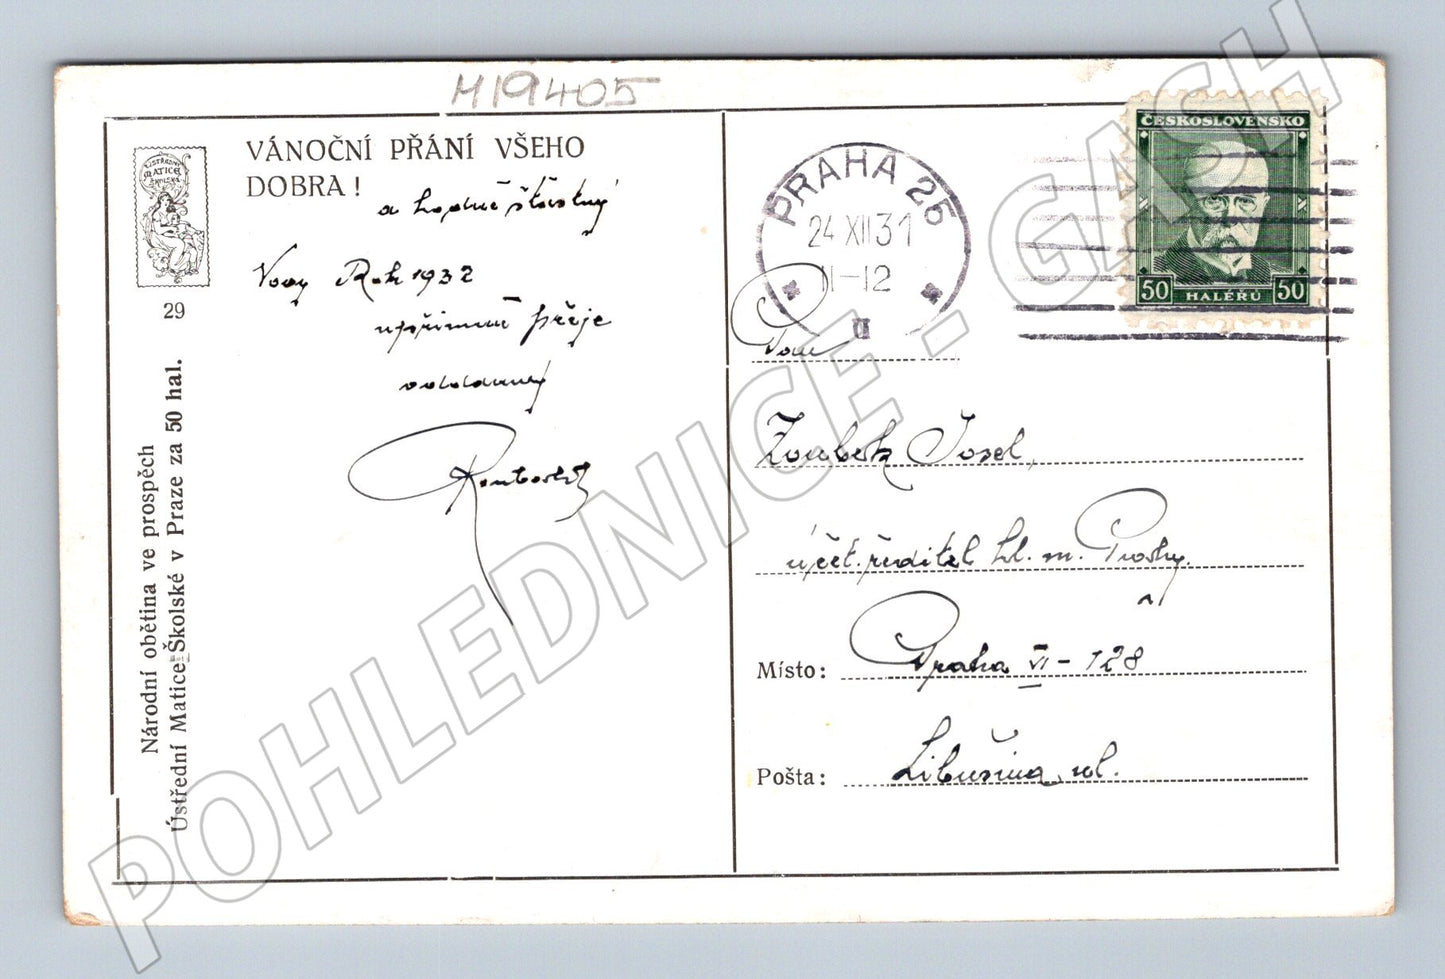 M19405
VÁNOČNÍ PŘÁNÍ VŠEHO
DOBRA!
a hodně šťastný
Nový Rok 1932
upřímně přeje
oddaný
ÚSTŘEDNÍ
MATICE
ŠKOLSKÁ
29
Národní obětina ve prospěch
Ústřední Matice Školské v Praze za 50 hal.
PRAHA 25
24 XII 31
11-12
ČESKOSLOVENSKO
50 HALÉŘŮ 50
Pan
Zoubek Josef,
účet. ředitel hl. m. Prahy.
Místo: Praha VI - 128
Pošta: Libušina ul.
POHLEDNICE - GASH